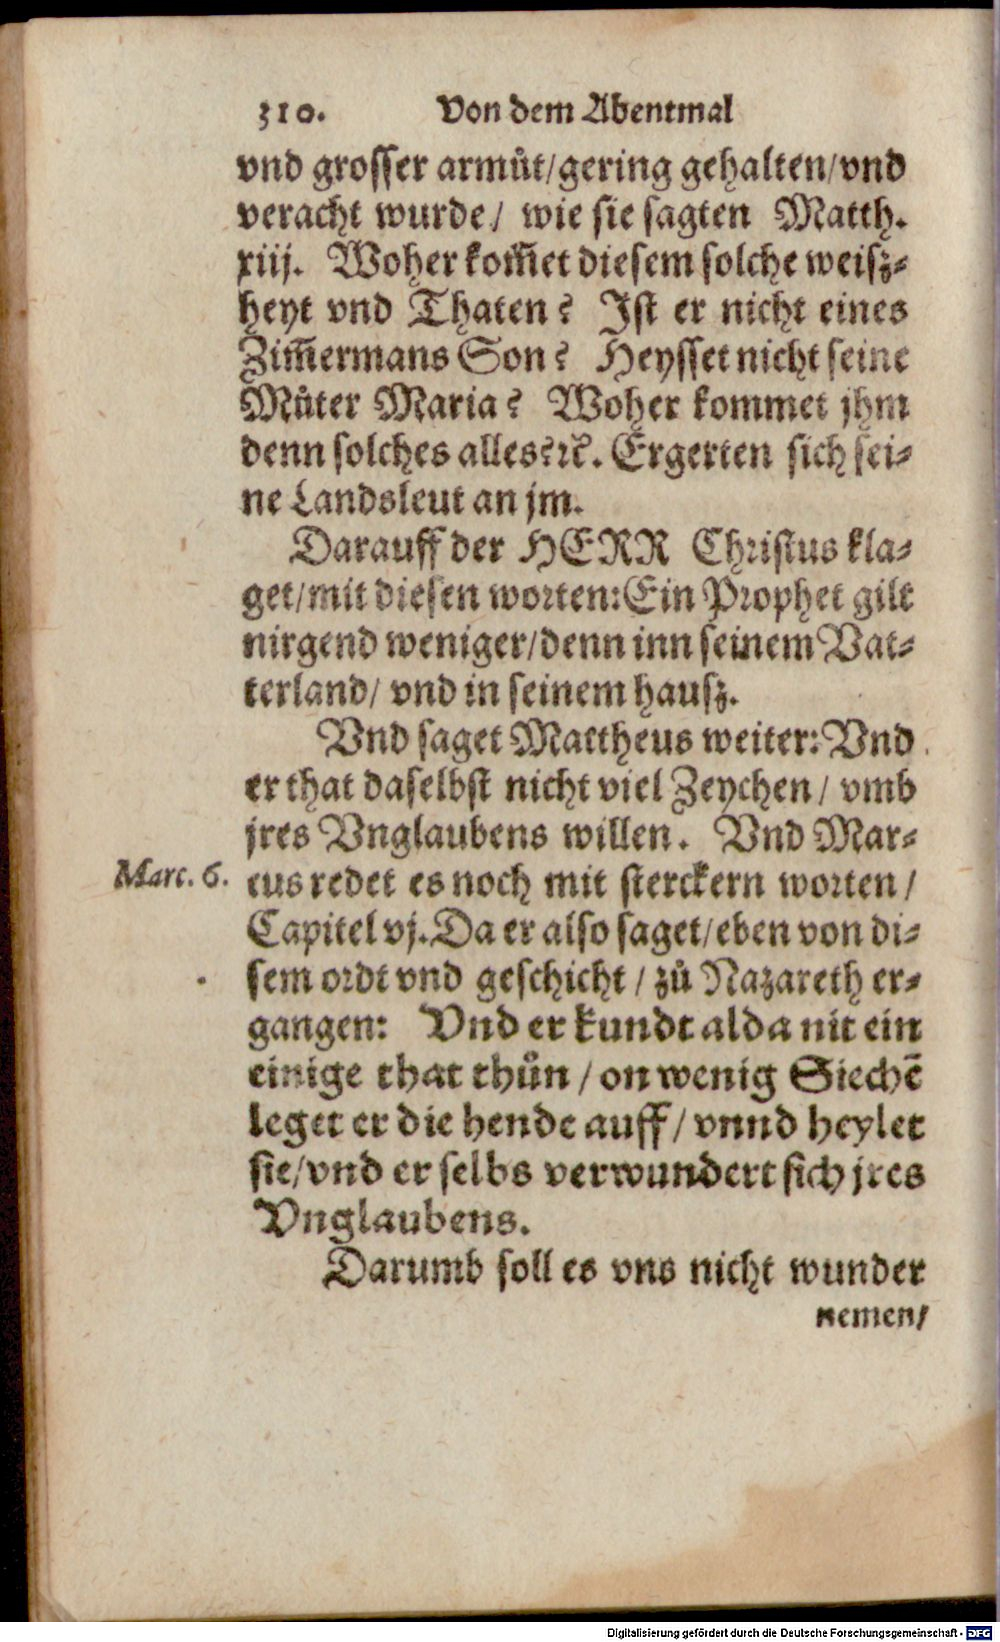 310. Von dem Abentmal
vnd grosser armůt/gering gehalten/vnd
veracht wurde/ wie sie sagten Matth.
xiij. Woher kom̃et diesem solche weisz-
heyt vnd Thaten? Ist er nicht eines
Zim̃ermans Son? Heysset nicht seine
Můter Maria? Woher kommet jhm
denn solches alles?ꝛc̃. Ergerten sich sei-
ne Landsleut an jm.
Darauff der HERR Christus kla-
get/mit diesen worten:Ein Prophet gilt
nirgend weniger/denn inn seinem Vat-
terland/ vnd in seinem hausz.
Vnd saget Mattheus weiter: Vnd
er that daselbst nicht viel Zeychen/ vmb
jres Vnglaubens willen. Vnd Mar-
Marc. 6. cus redet es noch mit sterckern worten/
Capitel vj. Da er also saget/eben von di-
sem ordt vnd geschicht/ zů Nazareth er-
gangen: Vnd er kundt alda nit ein
einige that thůn/ on wenig Siechē
leget er die hende auff/ vnnd heylet
sie/vnd er selbs verwundert sich jres
Vnglaubens.
Darumb soll es vns nicht wunder
nemen/
Digitalisierung gefördert durch die Deutsche Forschungsgemeinschaft - DFG